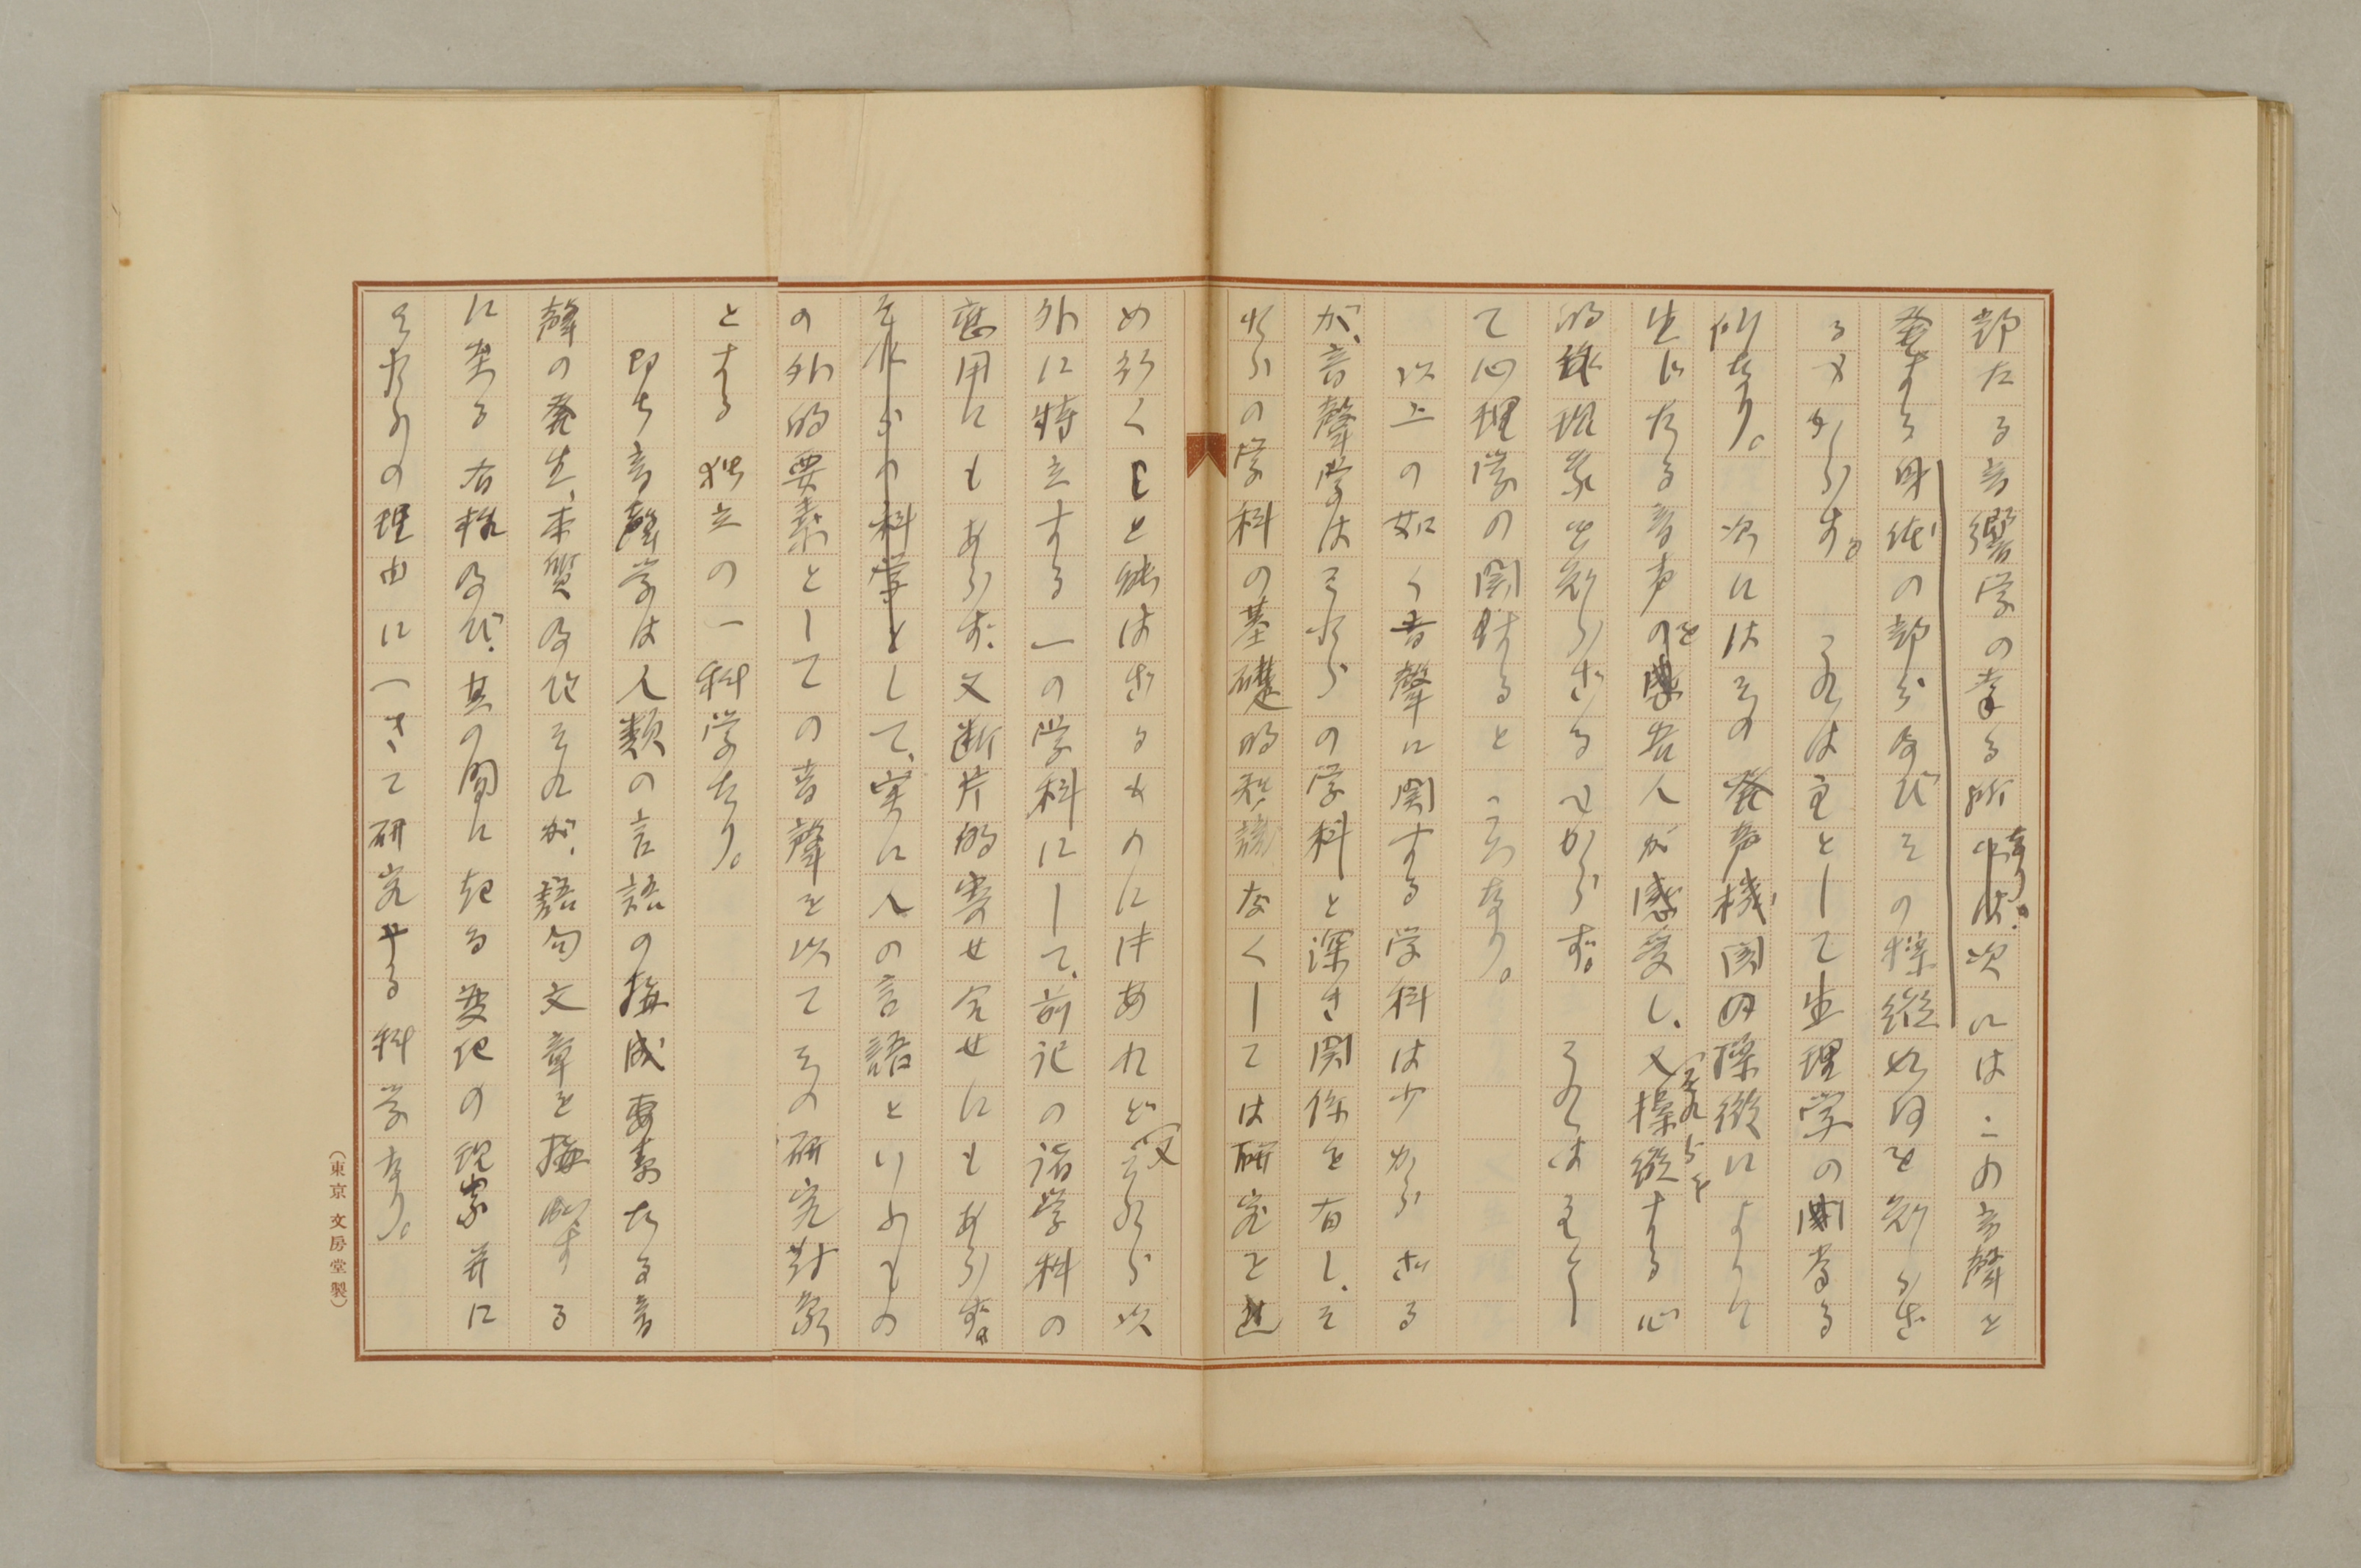 部たる音響学の掌る所なり。次にはこの音聲を
発する身体の部分及びその操縦如何を知らざ
るべからず。これは主として生理学の関する
所なり。次にはその発声機関の操縦によりて
生じたる音声を吾人が感受し、又之れらを操縦する心
的現象を知らざるべからず。これは主とし
て心理学の関係すると こ ろなり。
以上の如く音聲に関する学科は少からざる
が、音聲学はそれらの学科と深き関係を有し、そ
れらの学科の基礎的知識なくしては研究を進
め行くこと能はざるものにはあれど、又それら以
外に特立する一の学科にして、前記の諸学科の
應用にもあらず、又断片的寄せ合せにもあらず。
それらの科学として、実に人の言語といふもの
の外的要素としての音聲を以てその研究対象
とする独立の一科学なり。
即ち音聲学は人類の言語の構成要素たる音
聲の発生、本質及びそれが、語句文章を構成する
に至る有様及び、其の間に起る変化の現象并に
そ れらの理由に就きて研究する科学なり。
(東京 文房堂製)